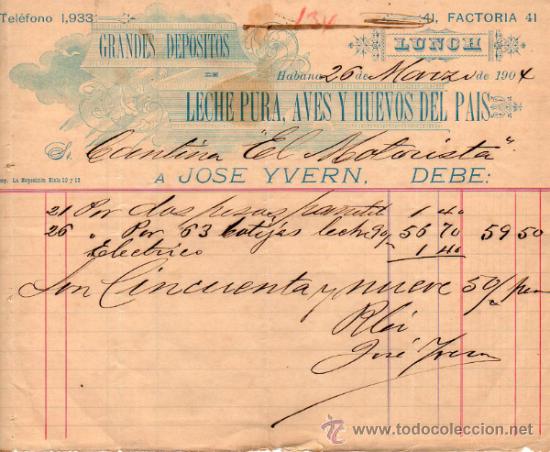 Teléfono 1,933
134
41, FACTORIA 41
GRANDES DEPOSITOS
DE
LUNCH
Habana 26 de Marzo de 1904
LECHE PURA, AVES Y HUEVOS DEL PAIS
Sr. Cantina "El Motorista"
A JOSE YVERN, DEBE:
Imp. La Exposición
21 Por dos pesos 1 40
26 " Por 63 botijas leche 90/ 56 70 59 50
Electrico 1 40
Son Cincuenta y nueve 50/
Rbí
José Yvern
todocoleccion
© www.todocoleccion.net